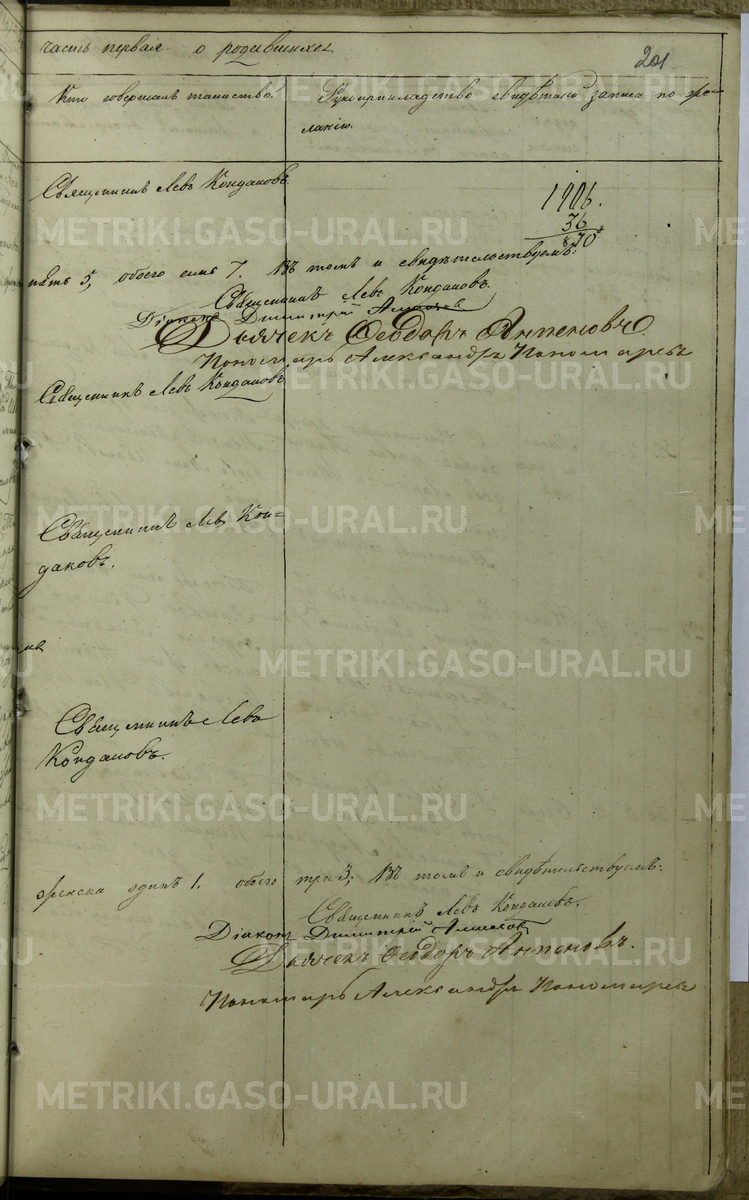 часть первая о родившихся
201
Кто совершалъ таинство?
Рукоприкладство свидѣтелей записи по же-
ланію.
Священникъ Левъ Кондаковъ
1906.
36
870
пять 5, обоего семь 7. Въ томъ и свидѣтельствуемъ:
Священникъ Левъ Кондаковъ.
Діаконъ Димитрій
Дьячекъ Ѳеодоръ Антеновъ.
Пономарь Александръ Пономаревъ
Священникъ Левъ Кондаковъ
Священникъ Левъ Кон=
даковъ.
Священникъ Левъ
Кондаковъ.
женска одинъ 1. обоего три 3; Въ томъ и свидѣтельствуемъ:
Священникъ Левъ Кондаковъ.
Діаконъ Димитрій
Дьячекъ Ѳеодоръ Антеновъ.
Пономарь Александръ Пономаревъ
METRIKI.GASO-URAL.RU